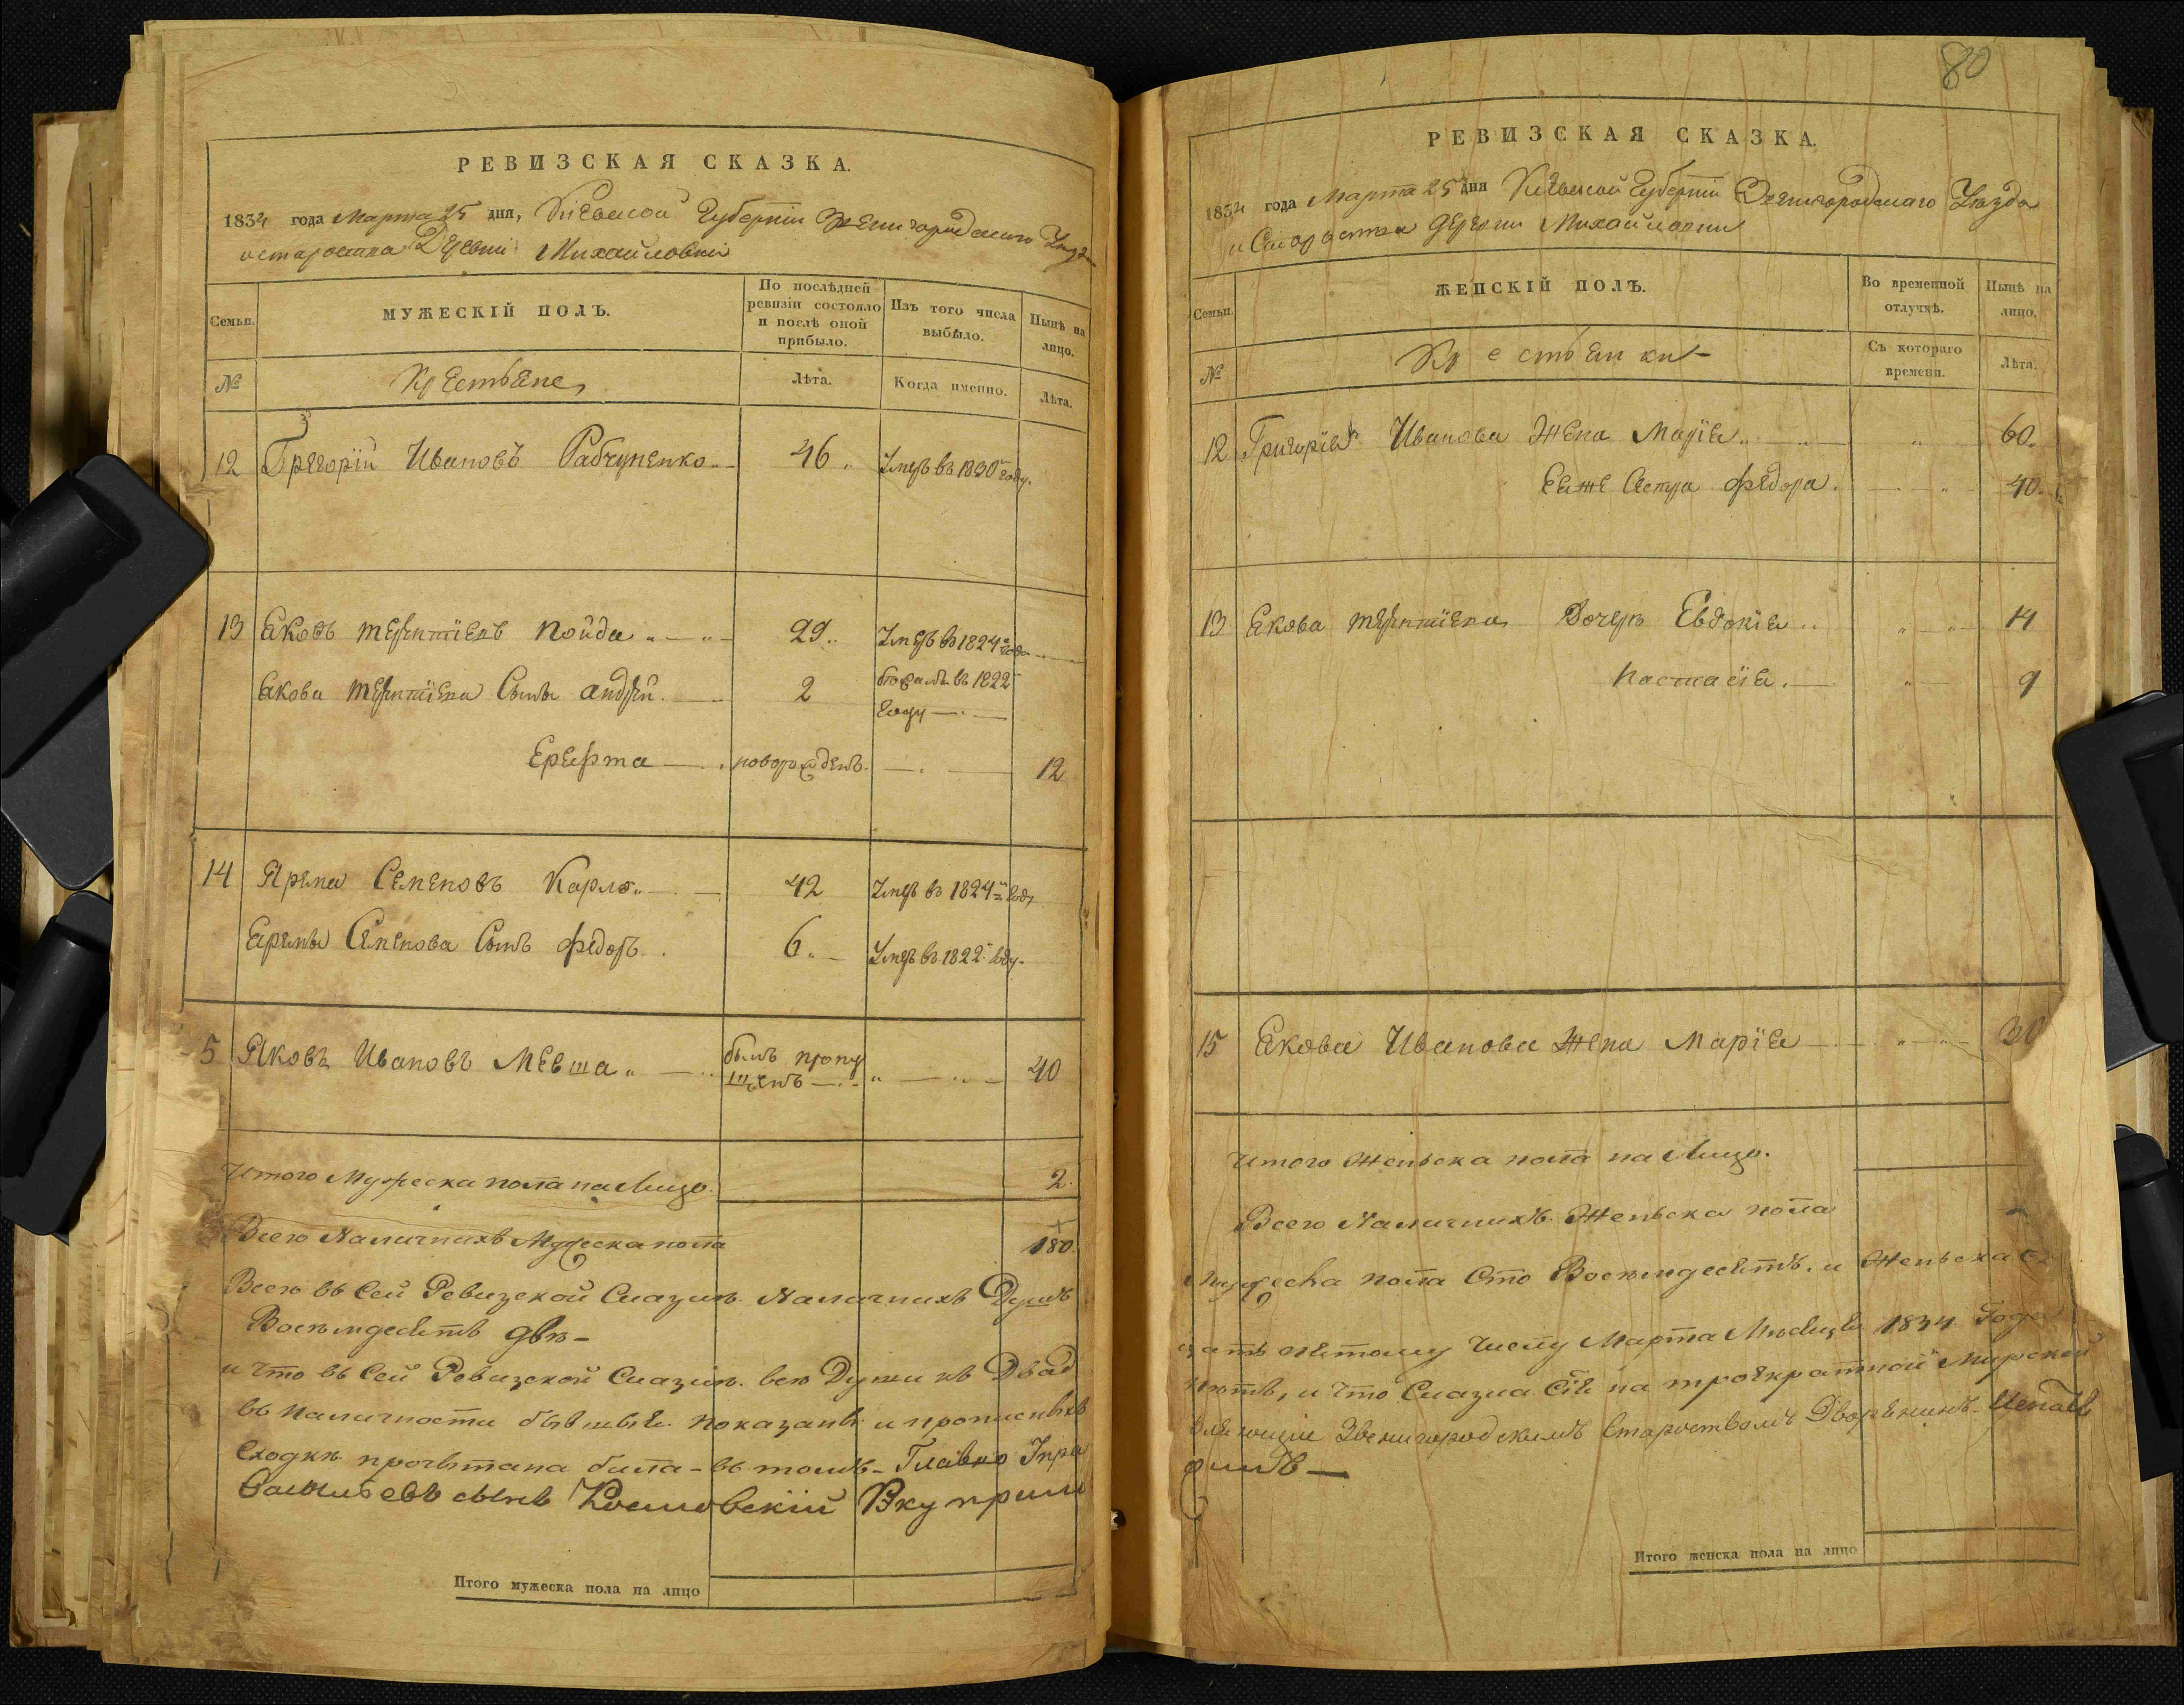 РЕВИЗСКАЯ СКАЗКА.
1834 года Марта 25 дня, Киевской Губернии Звенигородскаго Уезда
и староства Деревни Михайловки
Семьи.
МУЖЕСКІЙ ПОЛЪ.
По послѣдней ревизіи состояло и послѣ оной прибыло.
Изъ того числа выбыло.
Нынѣ на лицо.
№
Крестьяне
Лѣта.
Когда именно.
Лѣта.
12 Грегорій Ивановъ Рабчуненко 46 Умеръ въ 1830 году.
13 Яковъ Терентіевъ Пойда 29 Умеръ въ 1824 года
Якова Терентіева Сынъ Андрей 2 въ 1822
году
Ерефта новорожденъ 12
14 Ярема Семеновъ Карло 42 Умеръ въ 1824 году
Яремы Семенова Сынъ Федоръ 6 Умеръ въ 1822 году.
5 Яковъ Ивановъ Мевша былъ пропу
щенъ 40
Итого Мужеска пола на Лицо 2
Всего Наличнихъ Мужеска пола 180
Всего въ Сей Ревизской Сказкѣ Наличнихъ Душъ
Восемдесятъ двѣ
и Что въ Сей Ревизской Сказкѣ все Души къ Двад
въ наличности бывшые показаны и прописныхъ
Сходкѣ прочытана была въ томъ Главно Упра
сынъ Вку
Итого мужеска пола на лицо
80
РЕВИЗСКАЯ СКАЗКА.
1834 года Марта 25 дня Киевской Губерніи Звенигородскаго Уезда
и Староства деревни Михайловки
Семьи.
ЖЕНСКІЙ ПОЛЪ.
Во временной отлучкѣ.
Нынѣ на лицо.
№
Крестьянки
Съ котораго времени.
Лѣта.
12 Григорія Иванова Жена Марія 60
Еяже Сестра Федора 40
13 Якова Терентіева Дочеръ Евдокія 14
Настасія 9
15 Якова Иванова Жена Марія 30
Итого Женьска пола на Лицо.
Всего Наличнихъ Женьска пола
Мужеска пола Сто Восемдесятъ и Женьска
цать пятому Числу Марта Мѣсяца 1834 Года
нѣтъ, и Что Сказка Сія на троекратной Мирской
вляющій Звенигородскимъ Староствомъ Дворянинъ
Итого женска пола на лицо